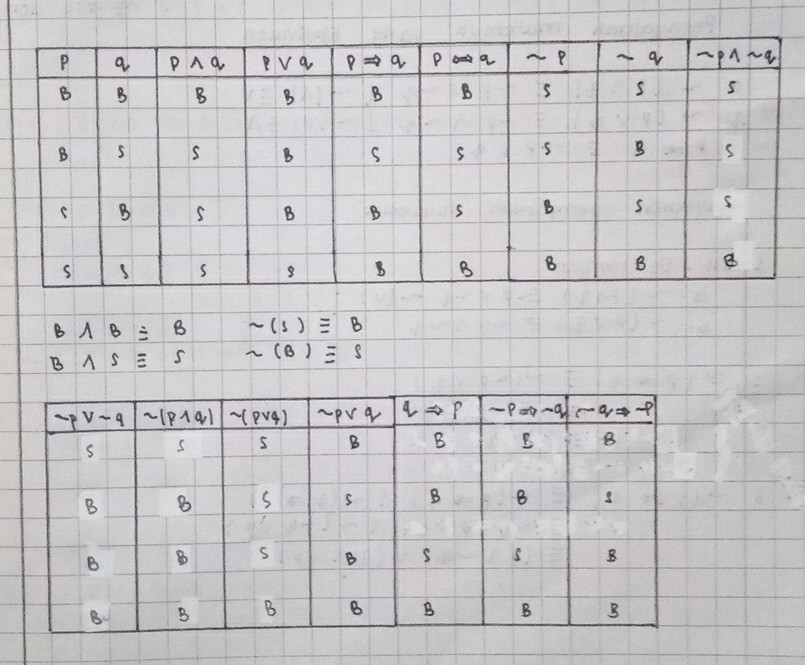 p q p ∧ q p ∨ q p ⇒ q p ⇔ q ~ p ~ q ~p ∧ ~q
B B B B B B S S S
B S S B S S S B S
S B S B B S B S S
S S S S B B B B B
B ∧ B ≡ B ~(S) ≡ B
B ∧ S ≡ S ~(B) ≡ S
~p ∨ ~q ~(p ∧ q) ~(p∨q) ~p ∨ q q ⇒ p ~p ⇒ ~q ~q ⇒ ~p
S S S B B B B
B B S S B B S
B B S B S S B
B B B B B B B